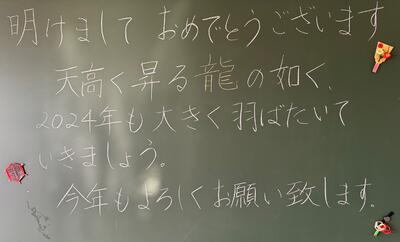 明けまして おめでとうございます
天高く昇る龍の如く、
2024年も大きく羽ばたいて
いきましょう。
今年もよろしくお願い致します。